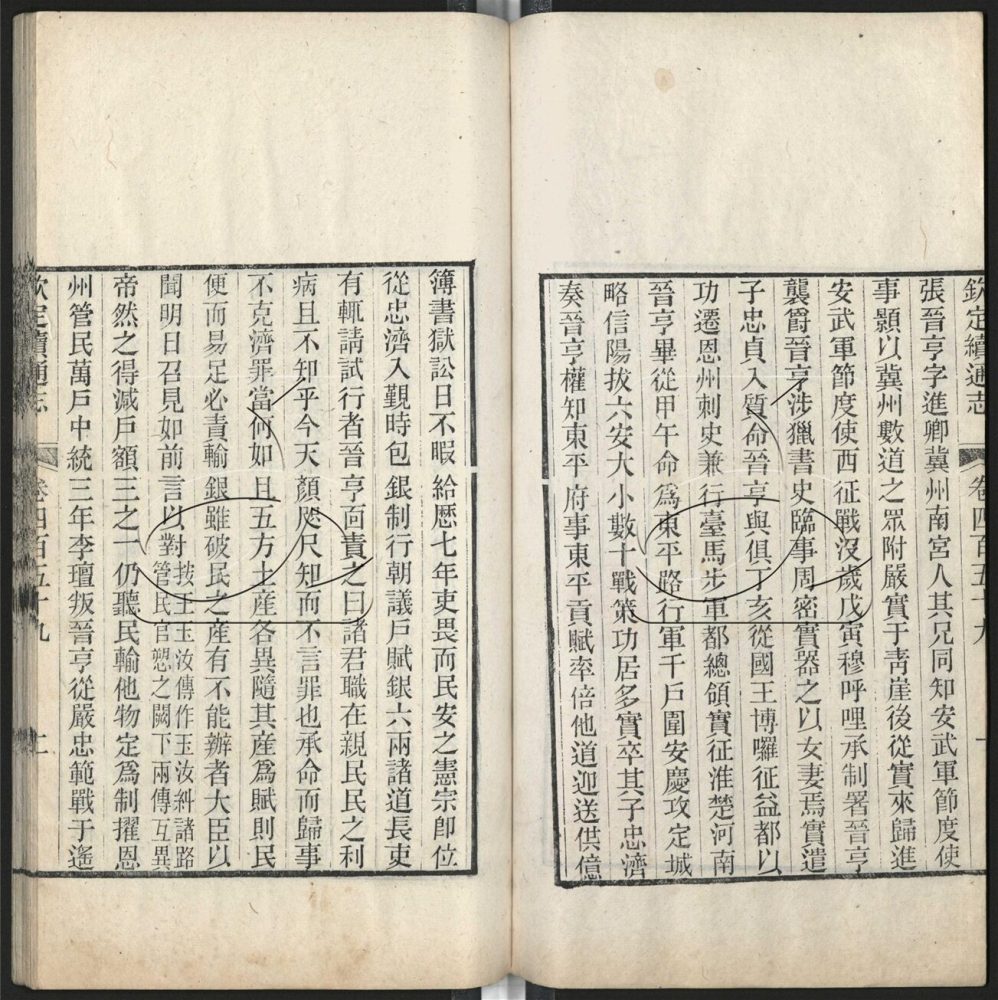 欽定續通志 卷四百五十九 一
張晉亨字進卿冀州南宮人其兄同知安武軍節度使
事顥以冀州數道之眾附嚴實于青崖後從實來歸進
安武軍節度使西征戰沒歲戊寅穆呼哩承制署晉亨
襲爵晉亨涉獵書史臨事周密實器之以女妻焉實遣
子忠貞入質命晉亨與俱丁亥從國王博囉征益都以
功遷恩州刺史兼行臺馬步軍都總領實征淮楚河南
晉亨畢從甲午命爲東平路行軍千戶圍安慶攻定城
略信陽拔六安大小數十戰策功居多實卒其子忠濟
奏晉亨權知東平府事東平貢賦率倍他道迎送供億
簿書獄訟日不暇給歷七年吏畏而民安之憲宗卽位
從忠濟入覲時包銀制行朝議戶賦銀六兩諸道長吏
有輒請試行者晉亨面責之曰諸君職在親民民之利
病且不知乎今天顏咫尺知而不言罪也承命而歸事
不克濟罪當何如且五方土產各異隨其產爲賦則民
便而易足必責輸銀雖破民之產有不能辦者大臣以
聞明日召見如前言以對按王玉汝傳作玉汝糾諸路
管民官愬之闕下兩傳互異
帝然之得減戶額三之一仍聽民輸他物定爲制擢恩
州管民萬戶中統三年李璮叛晉亨從嚴忠範戰于遙
欽定續通志 卷四百五十九 二